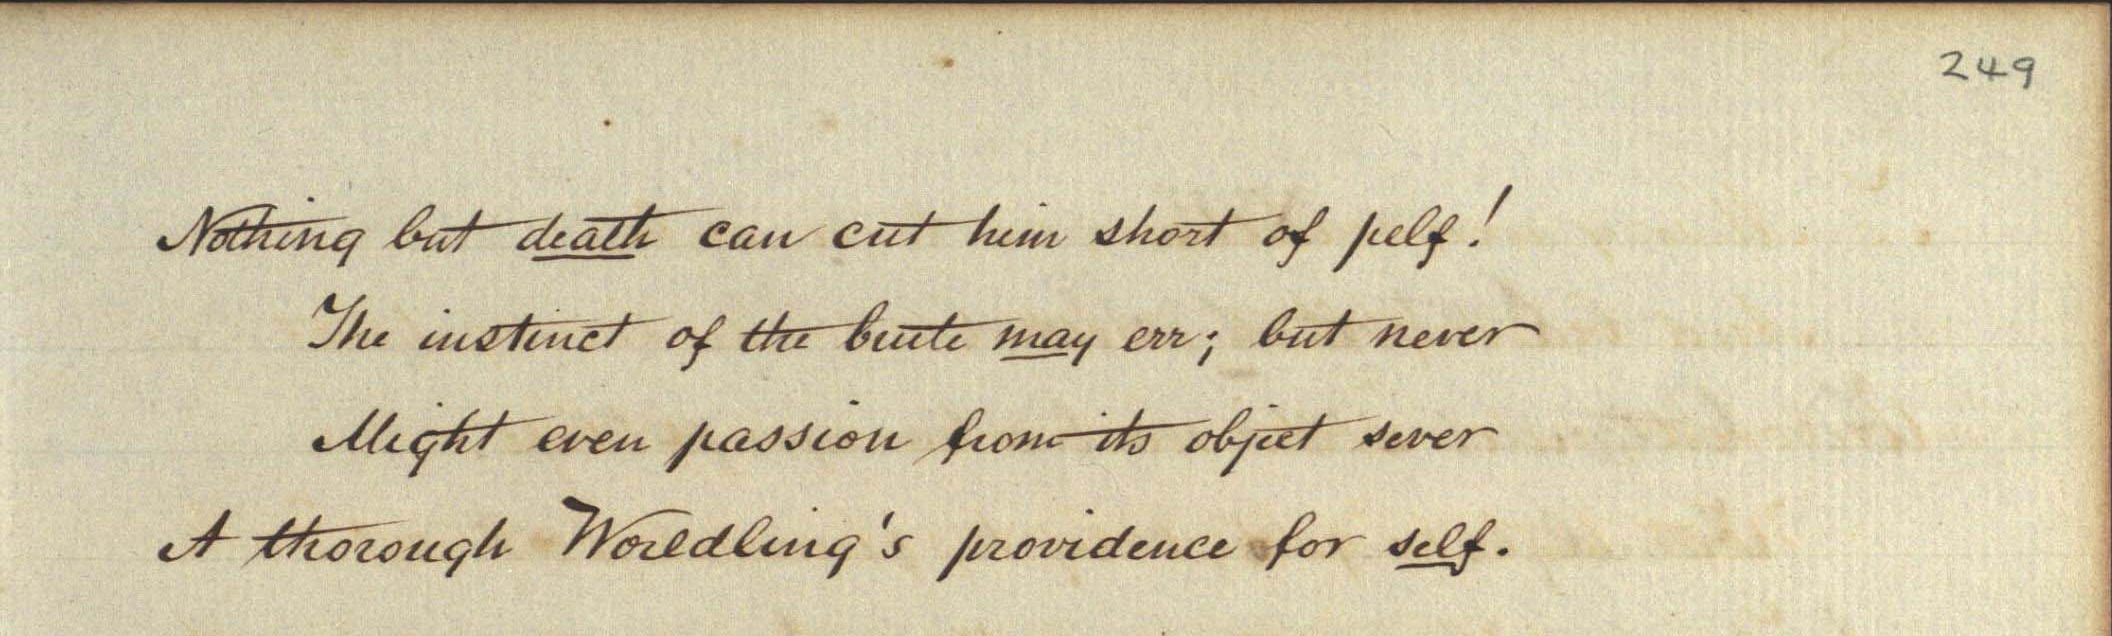 249
Nothing but death can cut him short of pelf!
The instinct of the brute may err; but never
Might even passion from its object sever
A thorough Worldling's providence for self.